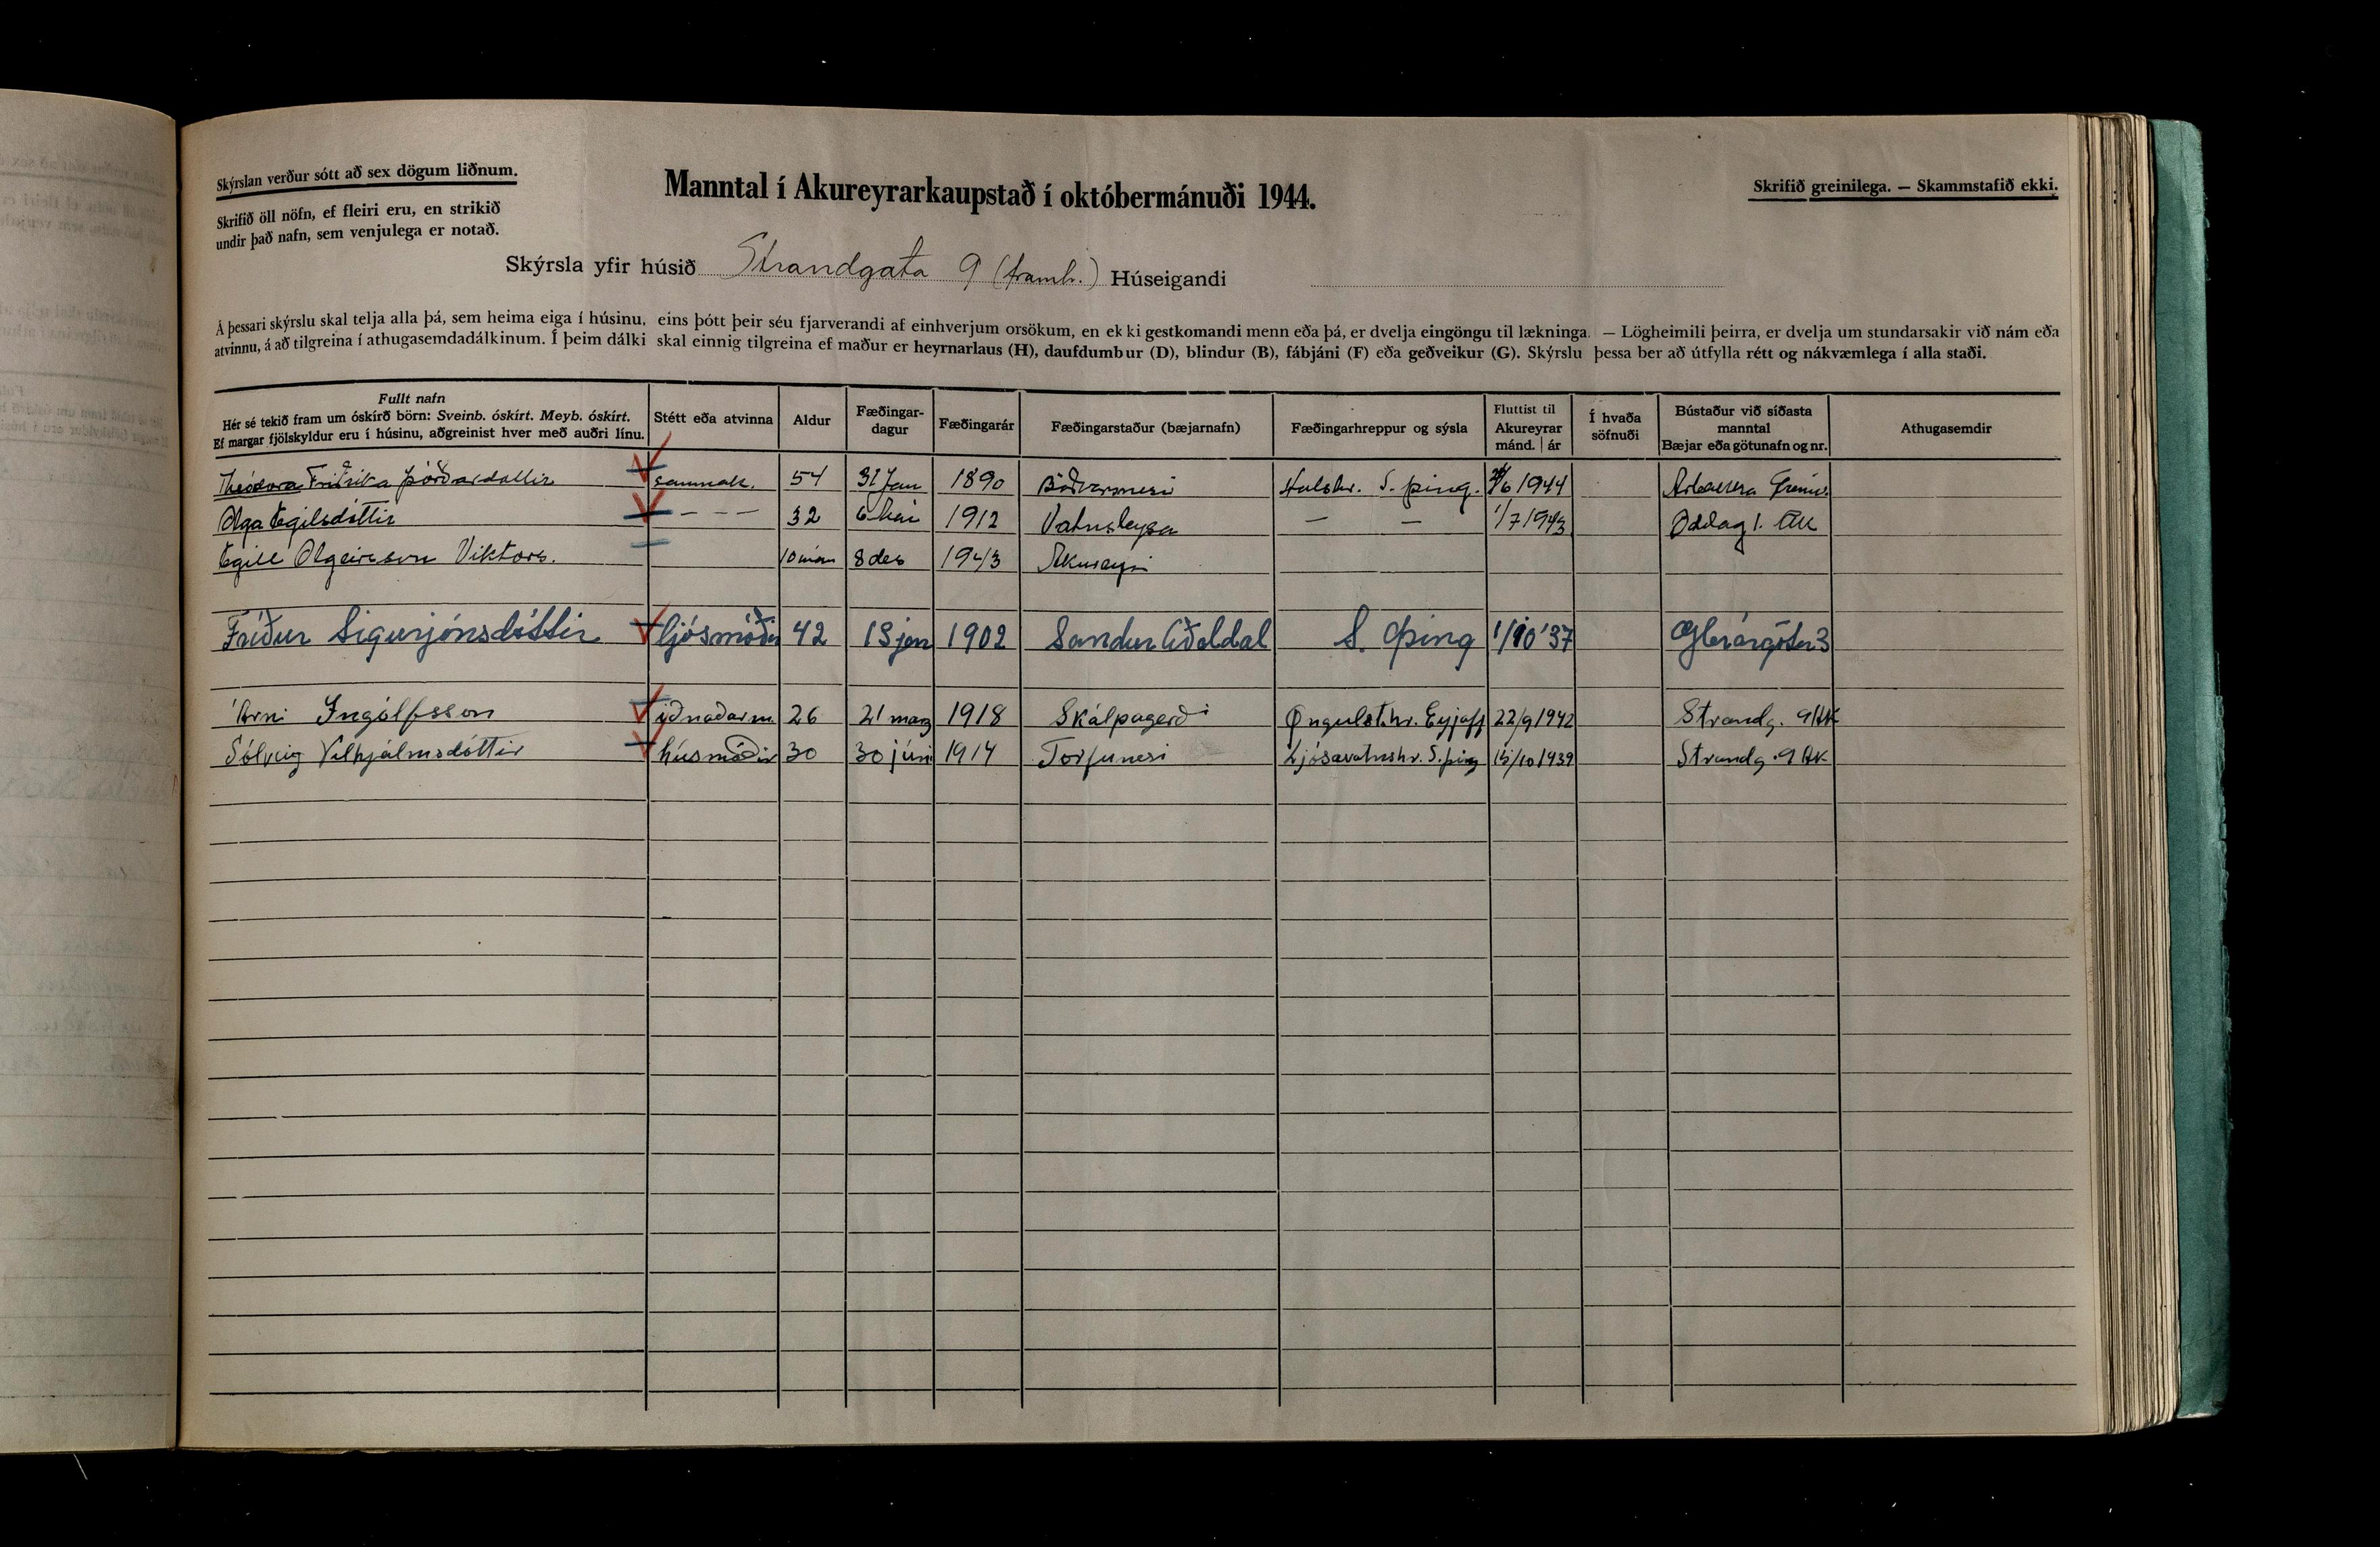 Skýrslan verður sótt að sex dögum liðnum.
Skrifið öll nöfn, ef fleiri eru, en strikið
undir það nafn, sem venjulega er notað.
Manntal í Akureyrarkaupstað í októbermánuði 1944.
Skrifið greinilega. — Skammstafið ekki.
Skýrsla yfir húsið Strandgata 9 (framh.) Húseigandi
Á þessari skýrslu skal telja alla þá, sem heima eiga í húsinu, eins þótt þeir séu fjarverandi af einhverjum orsökum, en ekki gestkomandi menn eða þá, er dvelja eingöngu til lækninga. — Lögheimili þeirra, er dvelja um stundarsakir við nám eða
atvinnu, á að tilgreina í athugasemdadálkinum. Í þeim dálki skal einnig tilgreina ef maður er heyrnarlaus (H), daufdumbur (D), blindur (B), fábjáni (F) eða geðveikur (G). Skýrslu þessa ber að útfylla rétt og nákvæmlega í alla staði.
Fullt nafn
Hér sé tekið fram um óskírð börn: Sveinb. óskírt. Meyb. óskírt.
Ef margar fjölskyldur eru í húsinu, aðgreinist hver með auðri línu.
Stétt eða atvinna
Aldur
Fæðingar-
dagur
Fæðingarár
Fæðingarstaður (bæjarnafn)
Fæðingarhreppur og sýsla
Fluttist til
Akureyrar
mánd. | ár
Í hvaða
söfnuði
Bústaður við síðasta
manntal
Bæjar eða götunafn og nr.
Athugasemdir
Theódora Friðrika Þórðardottir saumak. 54 31 Jan 1890 Böðvarsnesi Halshr. S. þing. /6 1944
Olga Egilsdóttir - - - 32 6 Mai 1912 Vatnsleysa — — 1/7 1943 Oddag 1. AK
Egill Olgeirsson Viktors. 10 mán 8 des 1943 Akureyri
Fríður Sigurjónsdóttir ljósmóðir 42 13 jan 1902 Sandur Aðaldal S. Þing 1/10 '37 Glerárgötu 3
Árni Ingólfsson iðnaðarm 26 21 marz 1918 Skálpagerði Öngulst.hr. Eyjaff 22/9 1942 Strandg. 9 AK
Sólveig Vilhjálmsdóttir húsmóðir 30 30 júni 1914 Torfunesi Ljósavatnshr. S. þing 15/10 1939 Strandg. 9 AK